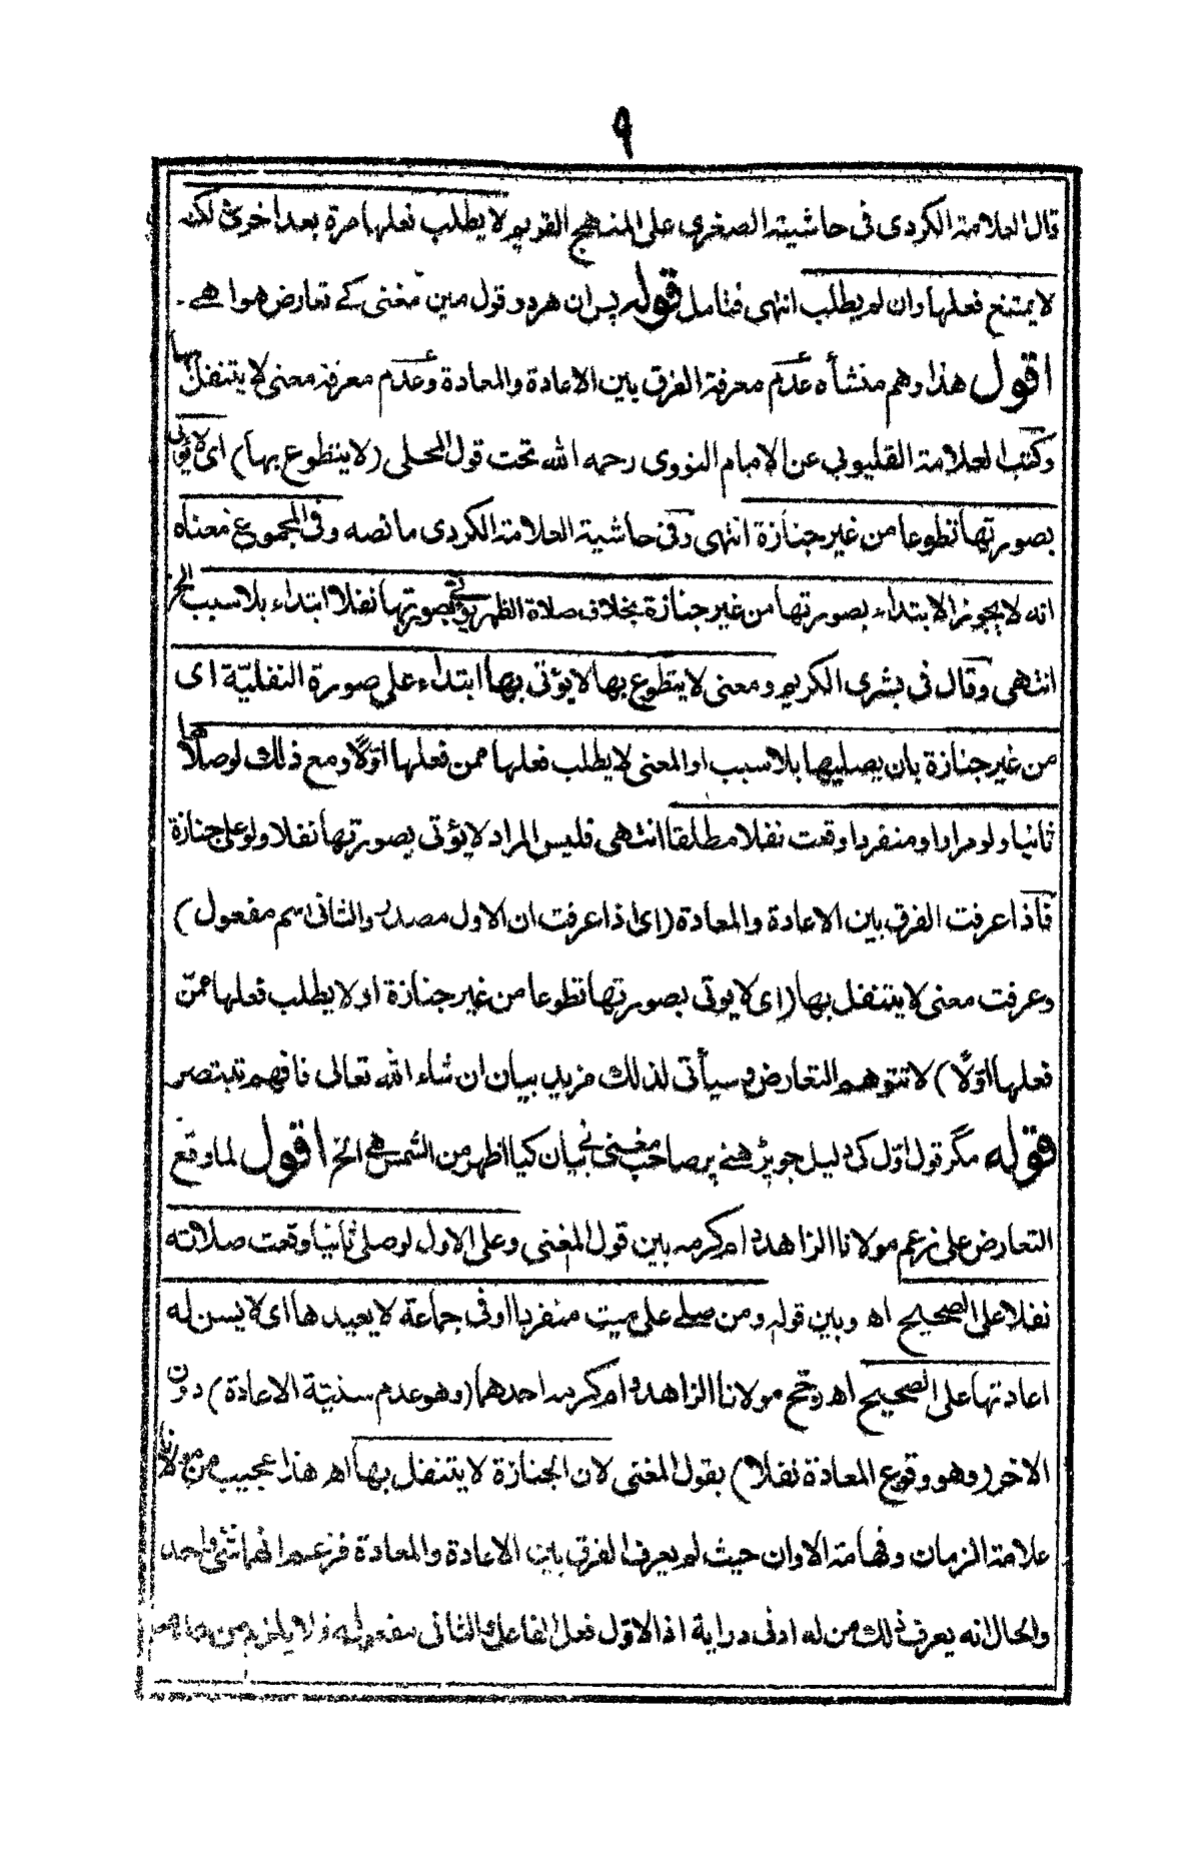 ٩
قال العلامة الكردى فى حاشيته الصغرى على المنهج القويم لا يطلب فعلها مرة بعد اخرى لكنه
لا يمتنع فعلها وان لم يطلب انتهى فتامل قوله پس ان هردو قول مين مغنى كے تعارض هوا هے ۔
اقول هذا وهم منشأه عدم معرفة الفرق بين الاعادة والمعادة وعدم معرفة معنى لا يتنفل بها
وكتب العلامة القليوبي عن الامام النووى رحمه الله تحت قول المحلى (لا يتطوع بها) اى لا يؤتى
بصورتها تطوعا من غير جنازة انتهى وفى حاشية العلامة الكردى ما نصه وفى المجموع معناه
انه لا يجوز الابتداء بصورتها من غير جنازة بخلاف صلاة الظهر يؤتى بصورتها نفلا ابتداء بلا سبب الخ
انتهى وقال فى بشرى الكريم ومعنى لا يتطوع بها لا يؤتى بها ابتداء على صورة النفليّة اى
من غير جنازة بان يصليها بلا سبب او المعنى لا يطلب فعلها ممن فعلها اوّلًا ومع ذلك لو صلاها
ثانيا ولو مرارا ومنفردا وقعت نفلا مطلقا انتهى فليس المراد لا يؤتى بصورتها نفلا ولو على جنازة
فاذا عرفت الفرق بين الاعادة والمعادة (اى اذا عرفت ان الاول مصدر والثانى اسم مفعول)
وعرفت معنى لا يتنفل بها (اى لا يوتى بصورتها تطوعا من غير جنازة او لا يطلب فعلها ممّن
فعلها اوّلًا) لا تتوهم التعارض وسيأتى لذلك مزيد بيان ان شاء الله تعالى فافهم تبتصر
قوله مگر قول اوّل كى دليل جو پڑهنے پر صاحب مغنى نے بيان كيا اظهر من الشمس هے الخ اقول لما وقع
التعارض على زعم مولانا الزاهد دام كرمه بين قول المغنى وعلى الاول لو صلى ثانيا وقعت صلاته
نفلا على الصحيح اه وبين قوله ومن صلى على ميت منفردا او فى جماعة لا يعيدها اى لا يسن له
اعادتها على الصحيح اه رجح مولانا الزاهد دام كرمه احدهما (وهو عدم سنيّة الاعادة) دون
الاخر (وهو وقوع المعادة نفلا) بقول المغنى لان الجنازة لا يتنفل بها اه هذا عجيب من مولانا
علامة الزمان وفهامة الاوان حيث لم يعرف الفرق بين الاعادة والمعادة فزعم انهما شئ واحد
والحال انه يعرف ذلك من له ادنى دراية اذ الاوّل فعل الفاعل والثانى مفعوله فلا يلزم من